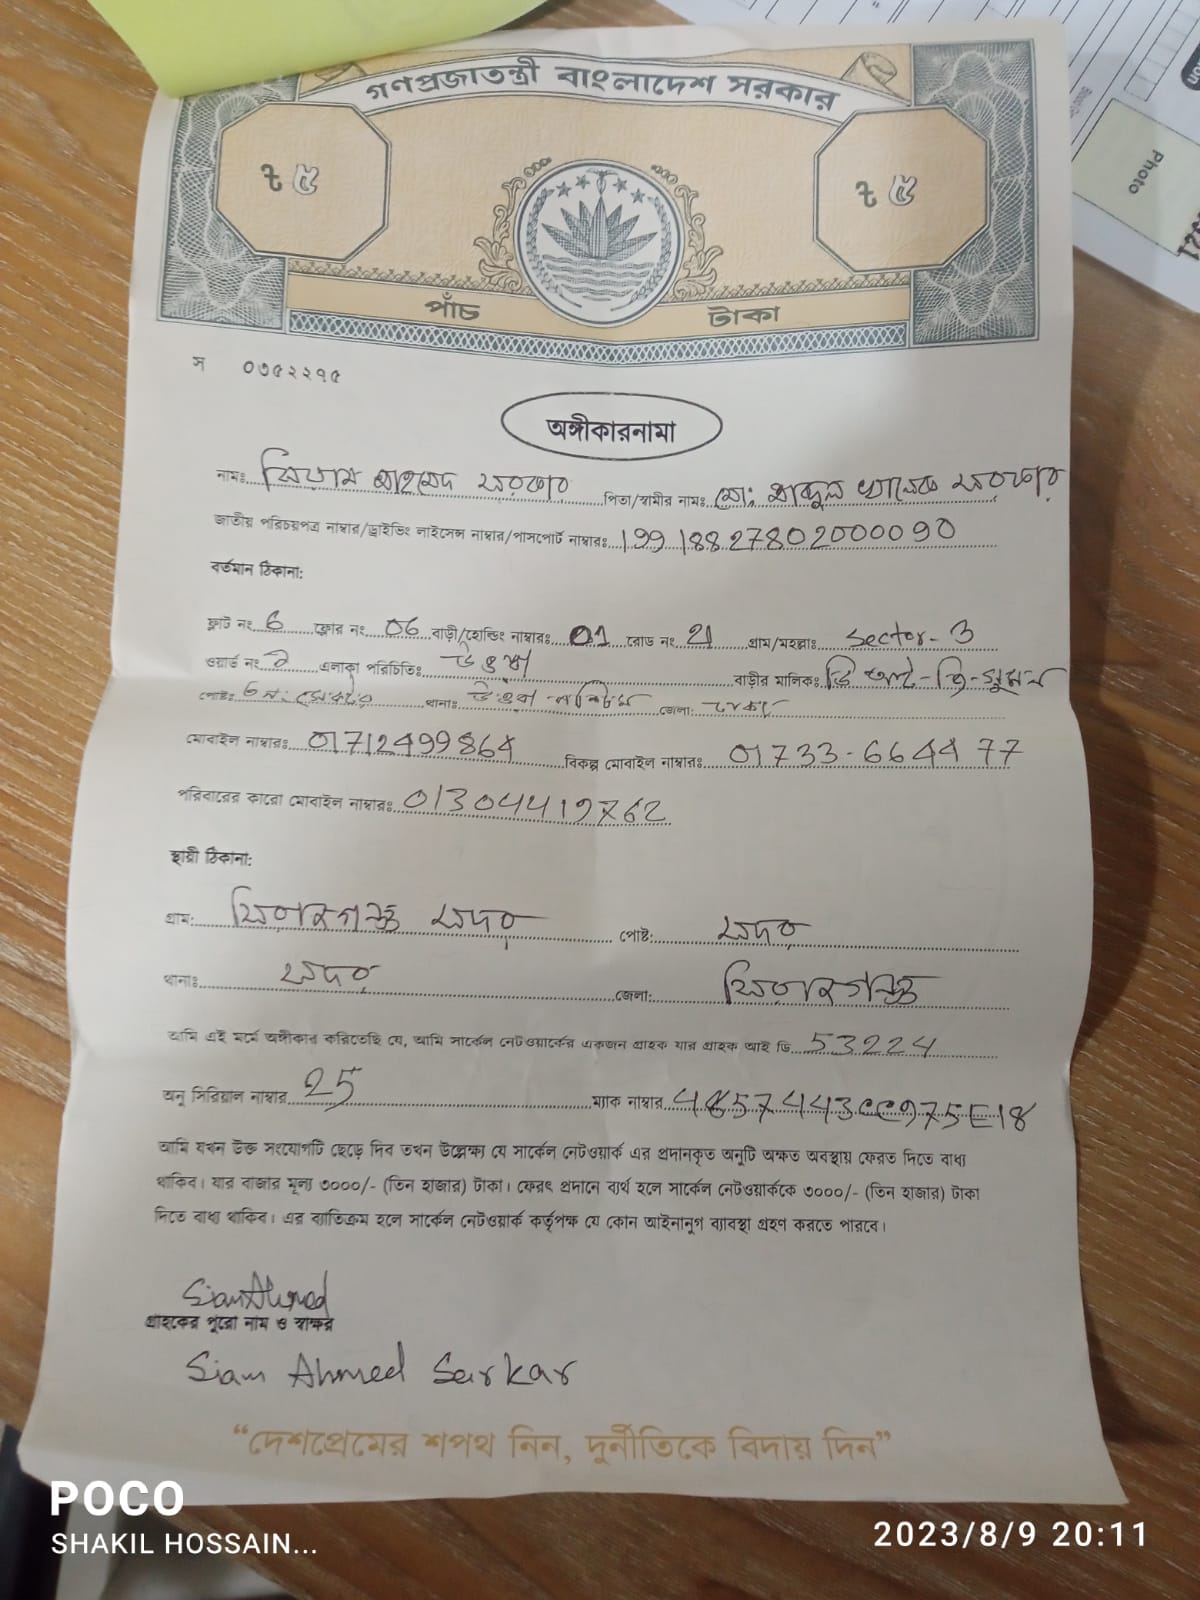 গণপ্রজাতন্ত্রী বাংলাদেশ সরকার
৳ ৫ ৳ ৫
Photo
পাঁচ টাকা
স ০৩৫২২৭৫
অঙ্গীকারনামা
নামঃ সিয়াম আহমেদ সরকার পিতা/স্বামীর নামঃ মো: আব্দুল খালেক সরকার
জাতীয় পরিচয়পত্র নাম্বার/ড্রাইভিং লাইসেন্স নাম্বার/পাসপোর্ট নাম্বারঃ 19918827802000090
বর্তমান ঠিকানা:
ফ্লাট নং 6 ফ্লোর নং 06 বাড়ী/হোল্ডিং নাম্বারঃ 01 রোড নং 21 গ্রাম/মহল্লাঃ Sector-3
ওয়ার্ড নং এলাকা পরিচিতিঃ উত্তরা বাড়ীর মালিকঃ
পোষ্টঃ থানাঃ উত্তরা পশ্চিম জেলা: ঢাকা
মোবাইল নাম্বারঃ 01712499864 বিকল্প মোবাইল নাম্বারঃ 01733-664477
পরিবারের কারো মোবাইল নাম্বারঃ
স্থায়ী ঠিকানা:
গ্রাম: সিরাজগঞ্জ সদর পোষ্ট: সদর
থানাঃ সদর জেলা: সিরাজগঞ্জ
আমি এই মর্মে অঙ্গীকার করিতেছি যে, আমি সার্কেল নেটওয়ার্কের একজন গ্রাহক যার গ্রাহক আই ডি 53224
অনু সিরিয়াল নাম্বার 25 ম্যাক নাম্বার
আমি যখন উক্ত সংযোগটি ছেড়ে দিব তখন উল্লেক্ষ্য যে সার্কেল নেটওয়ার্ক এর প্রদানকৃত অনুটি অক্ষত অবস্থায় ফেরত দিতে বাধ্য
থাকিব। যার বাজার মূল্য ৩০০০/- (তিন হাজার) টাকা। ফেরৎ প্রদানে ব্যর্থ হলে সার্কেল নেটওয়ার্ককে ৩০০০/- (তিন হাজার) টাকা
দিতে বাধ্য থাকিব। এর ব্যতিক্রম হলে সার্কেল নেটওয়ার্ক কর্তৃপক্ষ যে কোন আইনানুগ ব্যাবস্থা গ্রহণ করতে পারবে।
Siam Ahmed
গ্রাহকের পুরো নাম ও স্বাক্ষর
Siam Ahmed Sarkar
“দেশপ্রেমের শপথ নিন, দুর্নীতিকে বিদায় দিন”
POCO
SHAKIL HOSSAIN...
2023/8/9 20:11